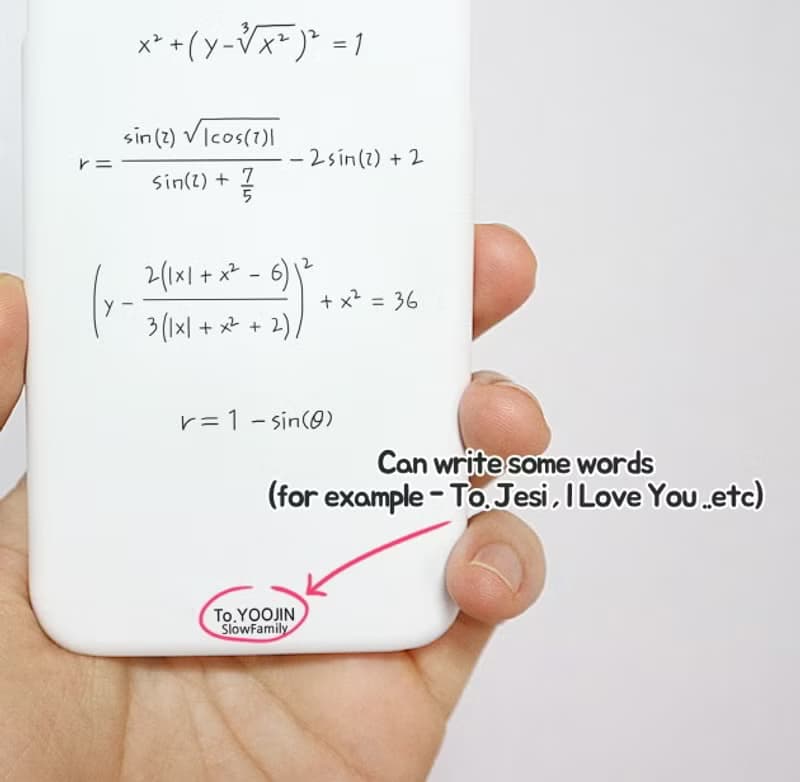 x² + (y - ∛x²)² = 1
r = sin(t) √|cos(t)| / (sin(t) + 7/5) - 2sin(t) + 2
(y - 2(|x| + x² - 6) / 3(|x| + x² + 2))² + x² = 36
r = 1 - sin(θ)
Can write some words
(for example - To. Jesi , I Love You ..etc)
To.YOOJIN
SlowFamily